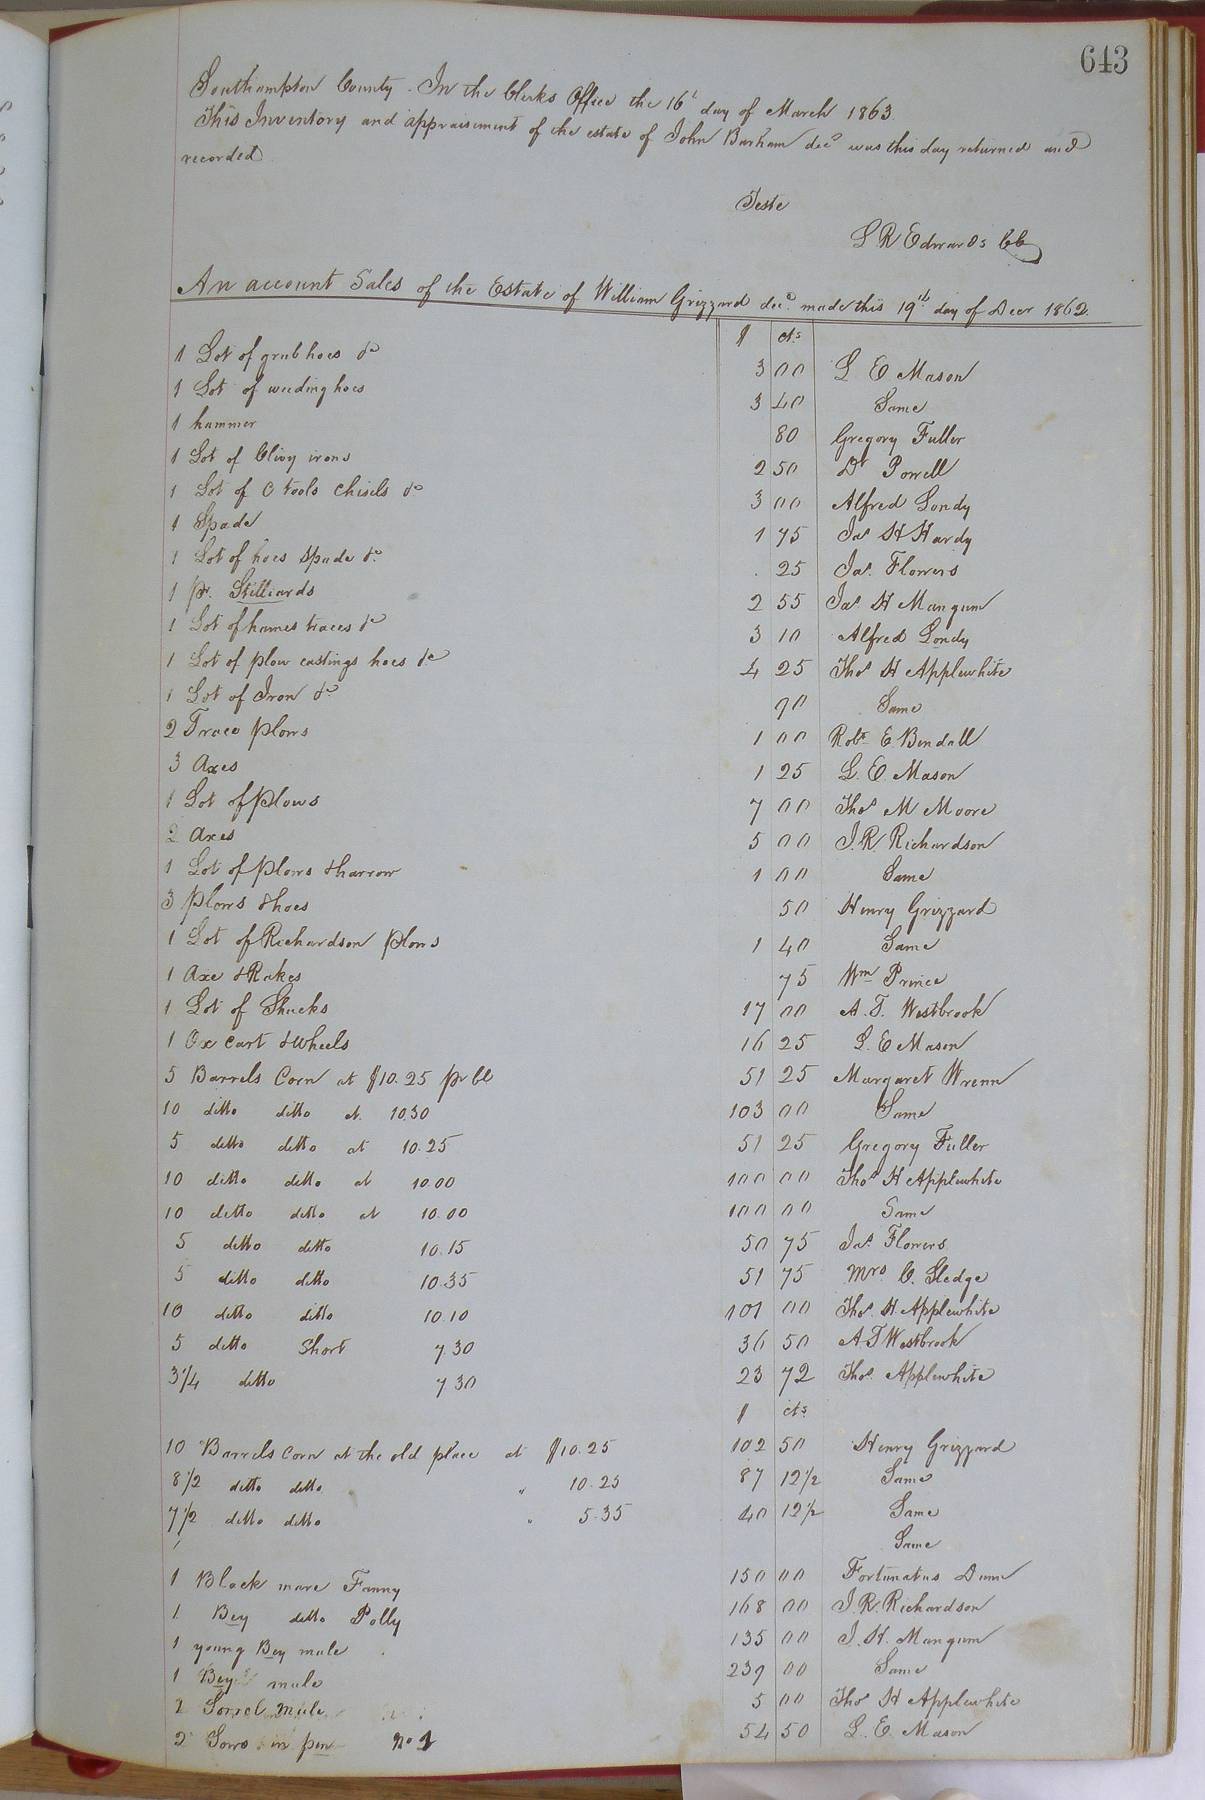 643
Southampton County - In the Clerks Office the 16t day of March 1863.
This Inventory and appraisement of the estate of John Barham decd was this day returned and
recorded
Teste
L R Edwards CC
An account Sales of the Estate of William Grizzard decd. made this 19th day of Decr 1862.
$ cts
1 Lot of grub hoes &c 3 00 L E Mason
1 Lot of weeding hoes 3 40 Same
1 hammer 80 Gregory Fuller
1 Lot of Clivy irons 2 50 Dr Powell
1 Lot of O tools Chisels &c 3 00 Alfred Londy
1 Spade 1 75 Jas H Hardy
1 Lot of hoes Spade &c. . 25 Jas. Flowers
1 pr. Stilliards 2 55 Jas H Mangum
1 Lot of hames traces &c 3 10 Alfred Londy
1 Lot of plow castings hoes &c 4 25 Thos H Applewhite
1 Lot of Iron &c 90 Same
2 Trace plows 1 00 Robt E Bendall
3 Axes 1 25 L. E. Mason
1 Lot of Plows 7 00 Thos M Moore
2 Axes 5 00 J. R. Richardson
1 Lot of Plows & harrow 1 00 Same
3 Plows & hoes 50 Henry Grizzard
1 Lot of Richardson plows 1 40 Same
1 Axe & Rakes 75 Wm Prince
1 Lot of Shucks 17 00 A. T. Westbrook
1 Ox cart & Wheels 16 25 L. E Mason
5 Barrels Corn at $10.25 pr bl 51 25 Margaret Wrenn
10 ditto ditto at. 10.30 103 00 Same
5 ditto ditto at 10.25 51 25 Gregory Fuller
10 ditto ditto at 10.00 100 00 Thos H Applewhite
10 ditto ditto at 10.00 100 00 Same
5 ditto ditto 10.15 50 75 Jas. Flowers
5 ditto ditto 10.35 51 75 Mrs C. Sledge
10 ditto ditto 10.10 101 00 Thos H. Applewhite
5 ditto Short 7.30 36 50 A. T Westbrook
3 1/4 ditto 7 30 23 72 Thos. Applewhite
$ cts
10 Barrels Corn at the old place at $10.25 102 50 Henry Grizzard
8 1/2 ditto ditto " 10.25 87 12 1/2 Same
7 1/2 ditto ditto " 5.35 40 12 1/2 Same
Same
1 Black mare Fanny 150 00 Fortunatus Dunn
1 Bey ditto Polly 168 00 J. R. Richardson
1 young Bey mule 135 00 J. H. Mangum
1 Bey mule 239 00 Same
2 Sorrel mule 5 00 Thos H Applewhite
2 Sows in pen No 1 54 50 L. E. Mason